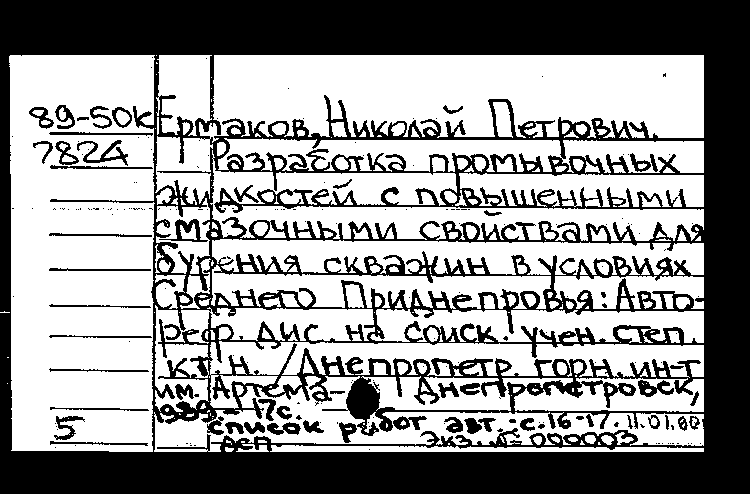 89-50к Ермаков, Николай Петрович.
7824 Разработка промывочных
жидкостей с повышенными
смазочными свойствами для
бурения скважин в условиях
Среднего Приднепровья: Авто-
реф. дис. на соиск. учен. степ.
к.т.н. / Днепропетр. горн. ин-т
им. Артема- Днепропетровск,
1989.- 17с.
5 Список работ авт.: с.16-17.
деп. экз. № 000003.